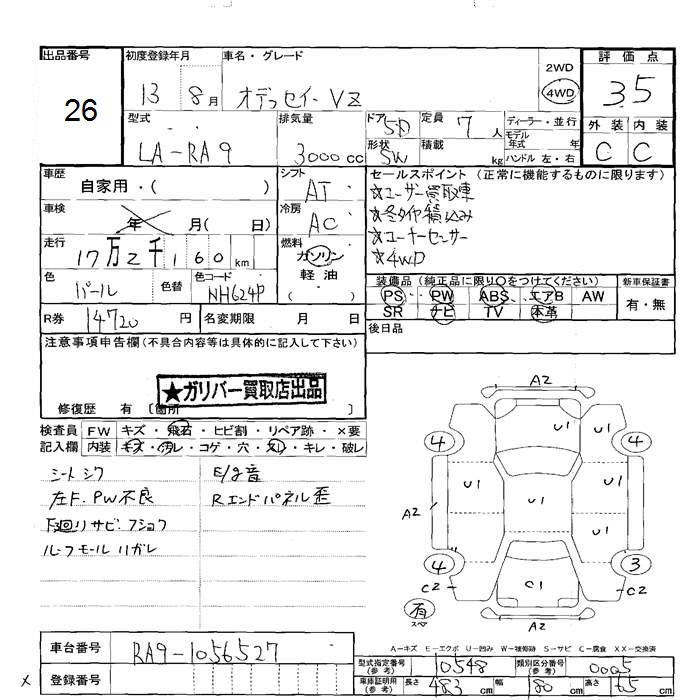 出品番号 初度登録年月 車名・グレード 評価点
26
13 8月 オデッセイ VZ
2WD
4WD
3.5
型式 排気量 ドア 5D 定員 7人 ディーラー・並行 外装 内装
モデル年式 年
LA-RA9 3000cc 形状 SW 積載 kg ハンドル 左・右 C C
車歴 シフト セールスポイント (正常に機能するものに限ります)
自家用・( ) AT ☆ユーザー買取車
車検 冷房 ☆冬タイヤ積込み
年 月( 日) AC ☆コーナーセンサー
走行 燃料 ☆4WD
17万2千160km ガソリン
軽油
( )
色 色替 色コード 装備品 (純正品に限り○をつけてください) 新車保証書
パール NH624P PS PW ABS エアB AW 有・無
SR ナビ TV 本革
R券 14720円 名変期限 月 日 後日品
注意事項申告欄(不具合内容等は具体的に記入して下さい)
★ガリバー買取店出品
修復歴 有 〔箇所 〕
検査員 FW キズ・飛石・ヒビ割・リペア跡・×要
記入欄 内装 キズ・汚レ・コゲ・穴・スレ・キレ・破レ
シートシワ E/g音
左F.PW不良 Rエンドパネル歪
下廻りサビ.フショク
ルーフモールハガレ
A2
4 U1 4
U1 U1
U1
A2 U1
4 3
C2 C1 C2
有
スペア
A2
A-キズ E-エクボ U-凹み W-補修跡 S-サビ C-腐食 XX-交換済
車台番号 RA9-1056527
登録番号
型式指定番号(参考) 10548 類別区分番号(参考) 0005
車庫証明用(参考) 長さ 483cm 幅 180cm 高さ cm
×